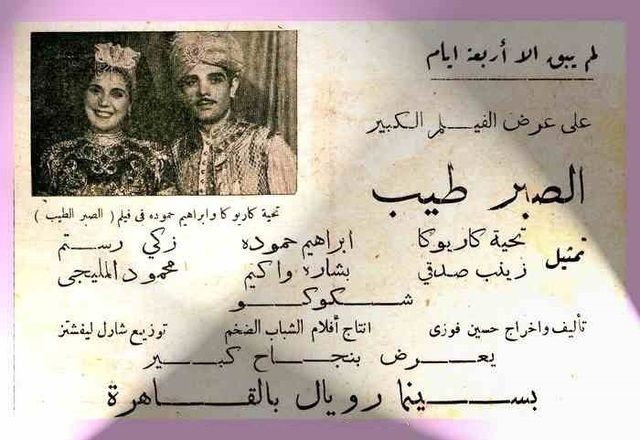 لم يبق الا أربعة ايام
على عرض الفيلم الكبير
الصبر طيب
تحية كاريوكا وابراهيم حموده فى فيلم ( الصبر الطيب )
تمثيل
تحية كاريوكا ابراهيم حموده زكي رستم
زينب صدقي بشاره واكيم محمود المليجى
شكوكو
تأليف واخراج حسين فوزى انتاج أفلام الشباب الضخم توزيع شارل ليفشتز
يعرض بنجاح كبير
بسينما رويال بالقاهرة